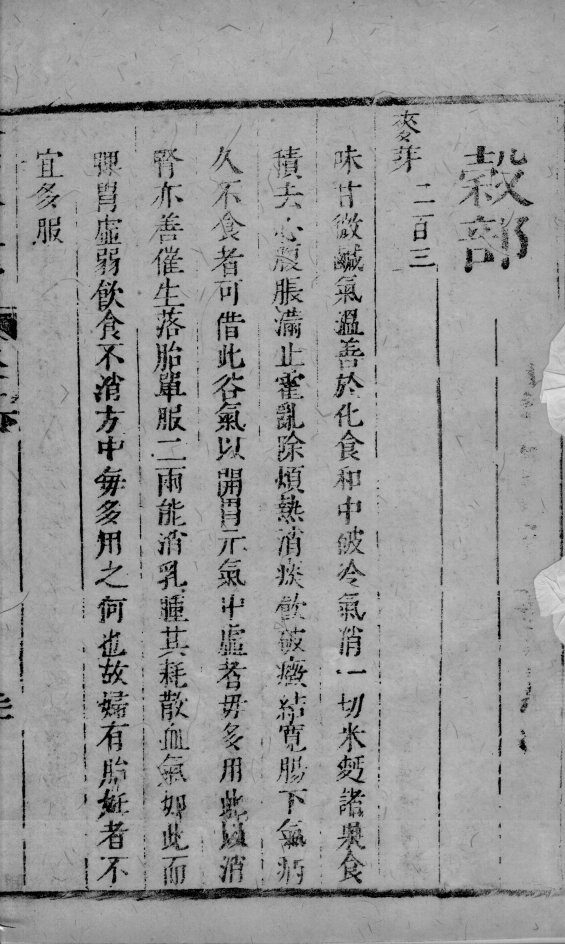 穀部
麥芽 二百三
味甘微鹹氣溫善於化食和中破冷氣消一切米麫諸果食
積去心腹脹滿止霍亂除煩熱消痰飲破癥結寬腸下氣病
久不食者可借此谷氣以開胃元氣中虛者毋多用此以消
腎亦善催生落胎單服二兩能消乳腫其耗散血氣如此而
脾胃虛弱飲食不消方中每多用之何也故婦有胎妊者不
宜多服